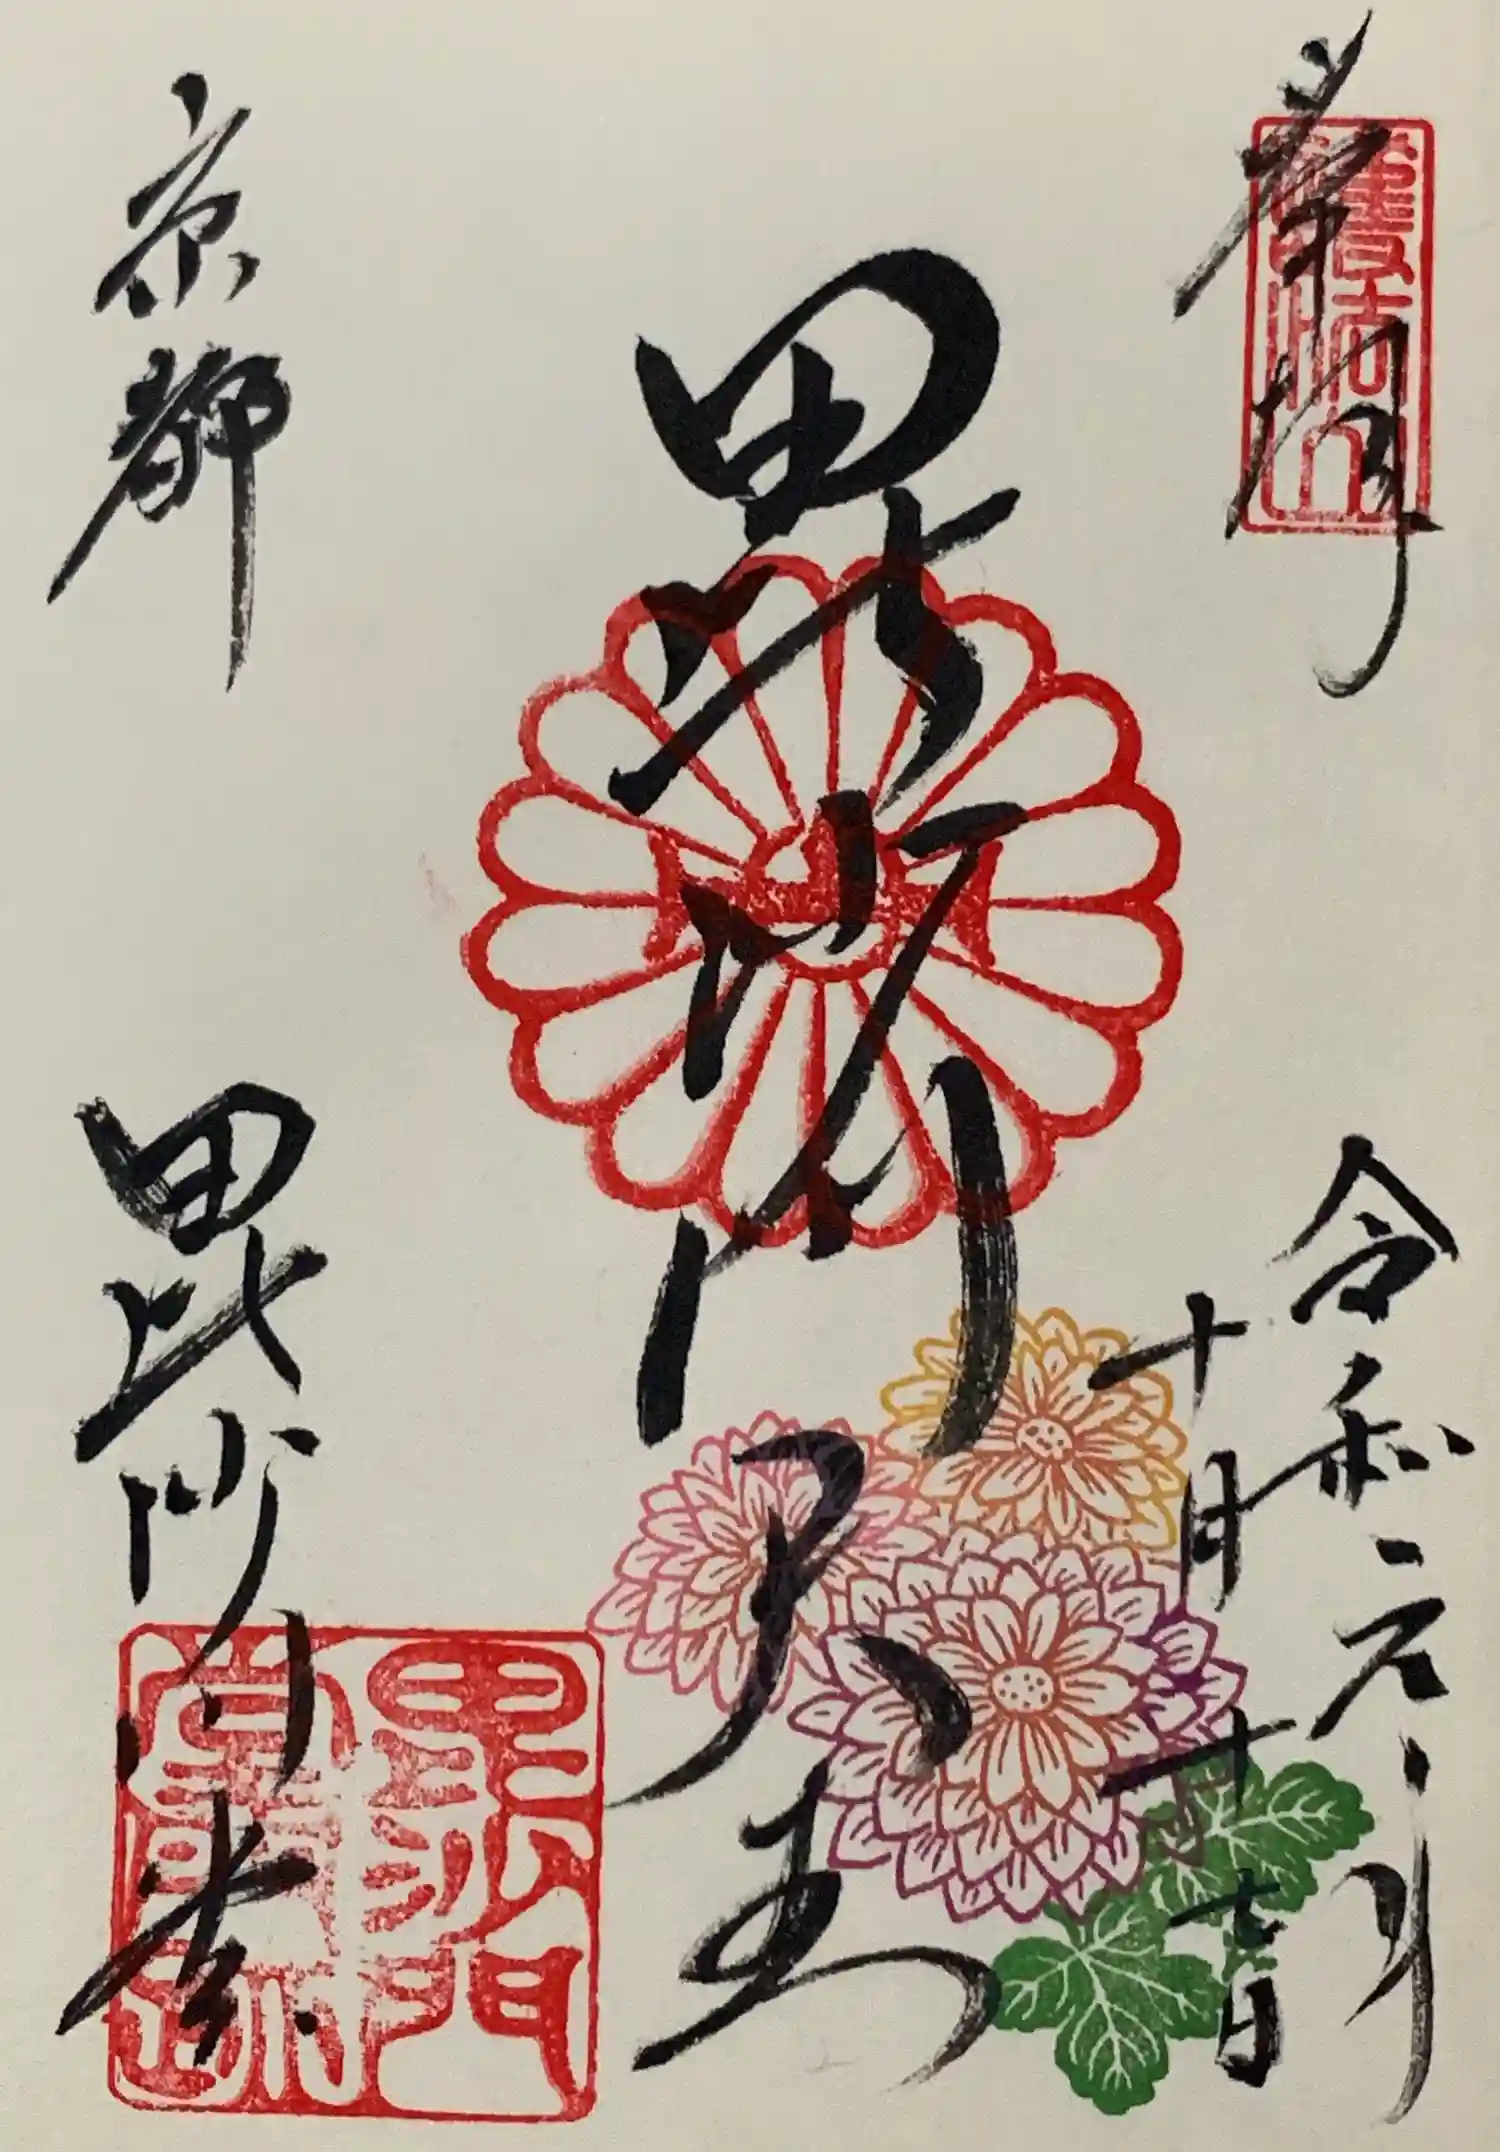 奉拝
令和元年
十月十七日
毘沙門天王
京都 毘沙門堂